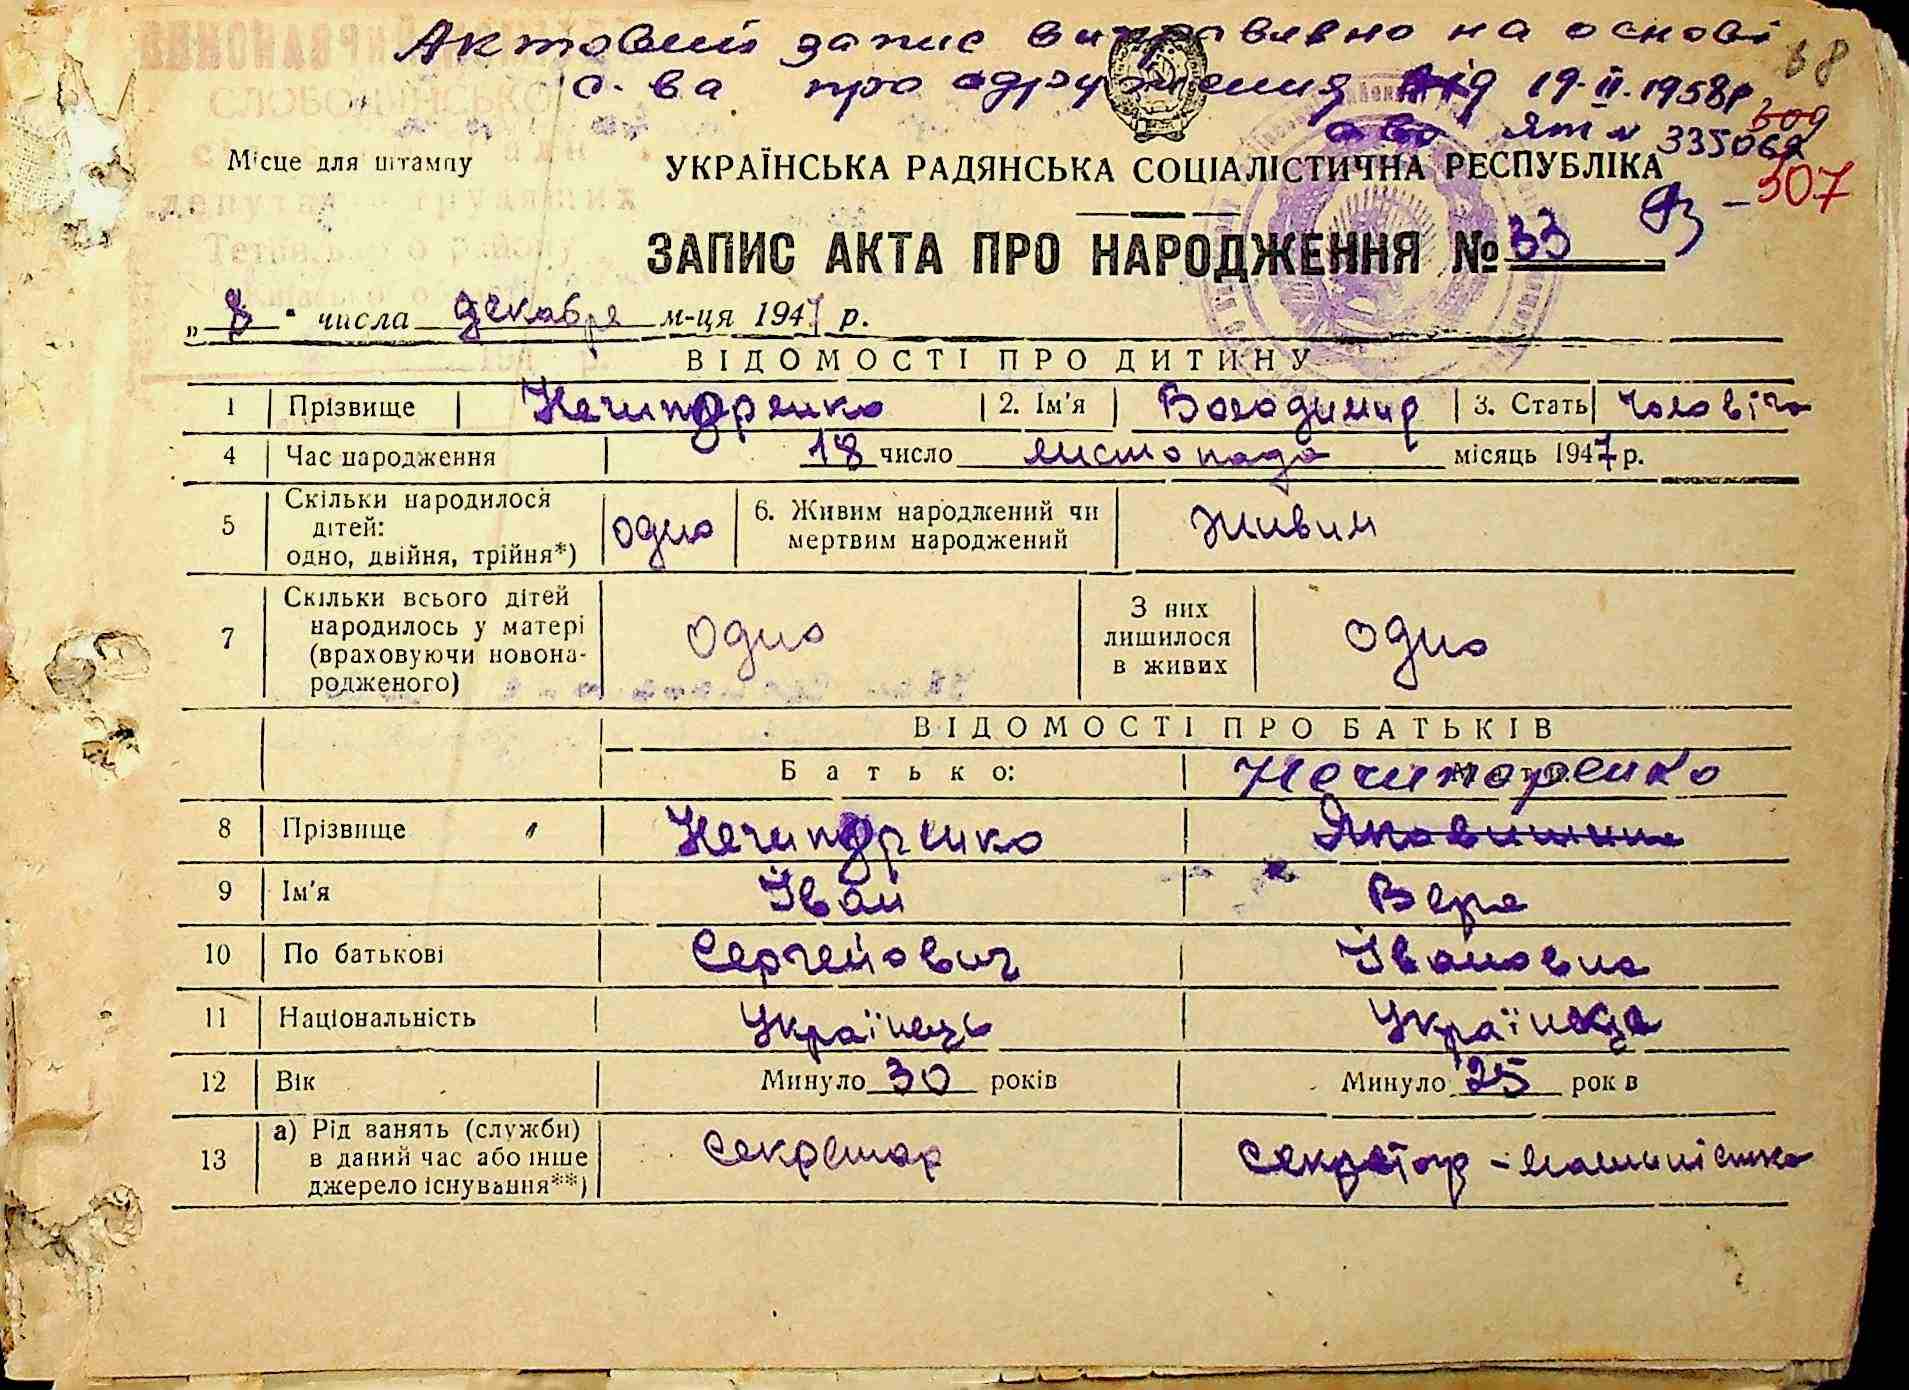 Актовий запис виправлено на основі
с-ва про одруження від 19.II.1958р
с-во ЯТ № 335062
68
309
307
Місце для штампу
УКРАЇНСЬКА РАДЯНСЬКА СОЦІАЛІСТИЧНА РЕСПУБЛІКА
ЗАПИС АКТА ПРО НАРОДЖЕННЯ № 33
„8“ числа декабря м-ця 1947 р.
ВІДОМОСТІ ПРО ДИТИНУ
1 Прізвище Нечипоренко 2. Ім'я Володимир 3. Стать чоловіча
4 Час народження 18 число листопада місяць 1947 р.
5 Скільки народилося дітей: одно, двійня, трійня*) одно 6. Живим народжений чи мертвим народжений живим
7 Скільки всього дітей народилось у матері (враховуючи новона-родженого) одно З них лишилося в живих одно
ВІДОМОСТІ ПРО БАТЬКІВ
Батько: Нечипоренко
8 Прізвище Нечипоренко Яковишина
9 Ім'я Іван Вера
10 По батькові Сергейович Івановна
11 Національність Українець Українка
12 Вік Минуло 30 років Минуло 25 рок в
13 а) Рід занять (служби) в даний час або інше джерело існування**) секретар секретар - машиністка